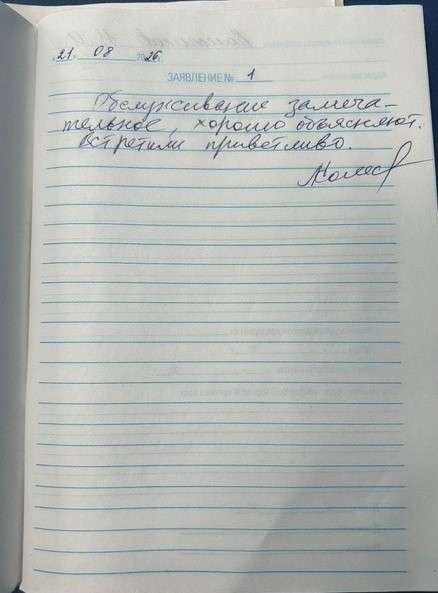 21. 08 2026.
ЗАЯВЛЕНИЕ № 1
Обслуживание замеча-
тельное, хорошо объясняют.
Встретили приветливо.